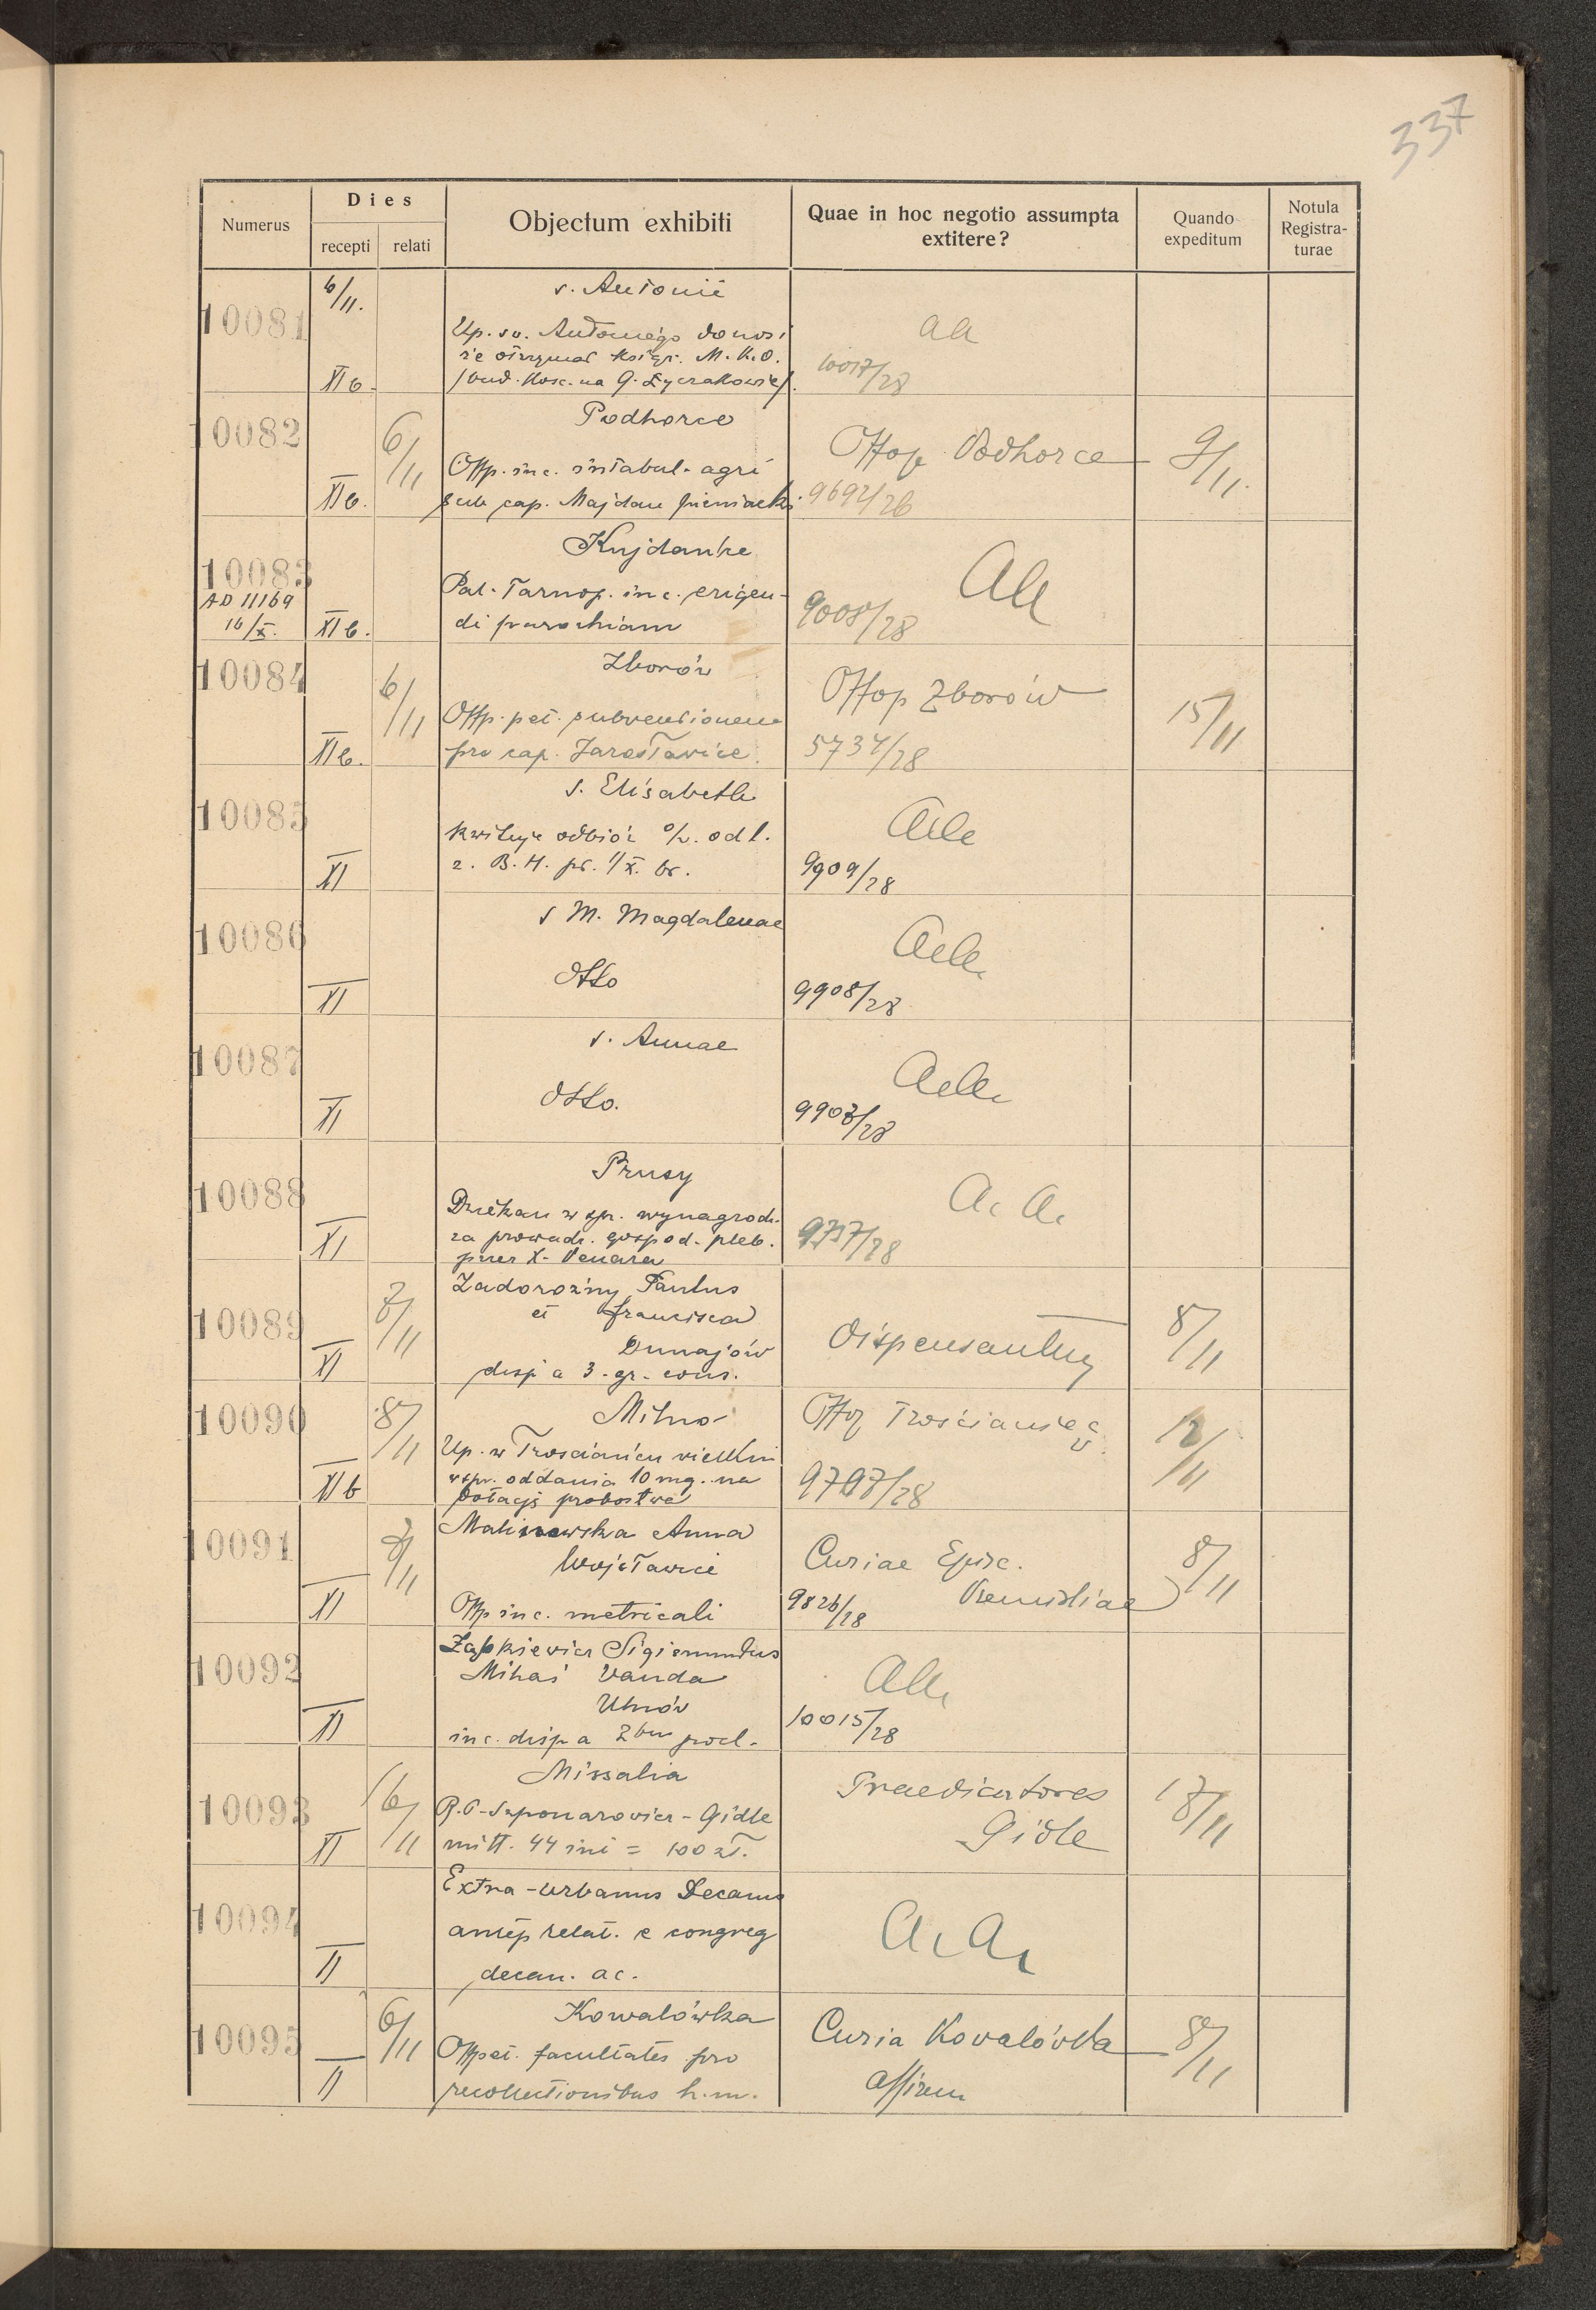 337
Numerus
Dies
recepti
relati
Objectum exhibiti
Quae in hoc negotio assumpta
extitere?
Quando
expeditum
Notula
Registra-
turae
10081
6/11.
XIb.
s. Antonii
Up. sw. Antoniego donosi
że otrzymał książ. M.K.O.
aa
10017/28
10082
XIb.
6/11
Podhorce
Offp. inc. intabul. agri
sub cap. Majdan pieniacki
Offop Podhorce
9692/26
9/11.
10083
AD 11169
16/X.
XIb.
Kujdańce
Pal. Tarnop. inc. erigen-
di parochiam
Aa
9008/28
10084
XIb.
6/11
Zborów
Offp. pet. subventionem
pro cap. Jarosławice.
Offop Zborów
5734/28
15/11
10085
XI
s. Elisabeth
Kwituje odbiór % od l.
z. B. H. pr. 1/X. br.
9909/28
10086
XI
s M. Magdalenae
dtto
9908/28
10087
XI
s. Annae
dtto.
10088
XI
Prusy
Dziekan w spr. wynagrodz.
za prowadz. gospod. pleb.
przez X.
A. A.
10089
XI
7/11
Zadorożny Paulus
et Francisca
Dunajów
disp a 3. gr. cons.
dispensantur
8/11
10090
XIb
8/11
Milno
Up. w Trościańcu wielkim
w spr. oddania 10 mg. na
dotację probostwa
Offop Trościaniec
W
9797/28
12/11
10091
XI
7/11
Maliszewska Anna
Wojsławice
Offp inc. metricali
Curiae Episc.
Premisliae
9826/28
8/11
10092
XI
Sigismundus
Mihaś Vanda
Uhnów
inc. disp a 2bus procl.
10015/28
10093
XI
6/11
Missalia
R.P. Szponarowicz - Gidle
mitt. 44 ini = 100 zł.
Praedicatores
Gidle
17/11
10094
XI
Extra-urbanus Decanus
relat. e congreg
decan. ac.
A. A.
10095
XI
6/11
Kowalówka
Offpet. facultates pro
recollectionibus h.m.
Curia Kovalówka
affirm
8/11